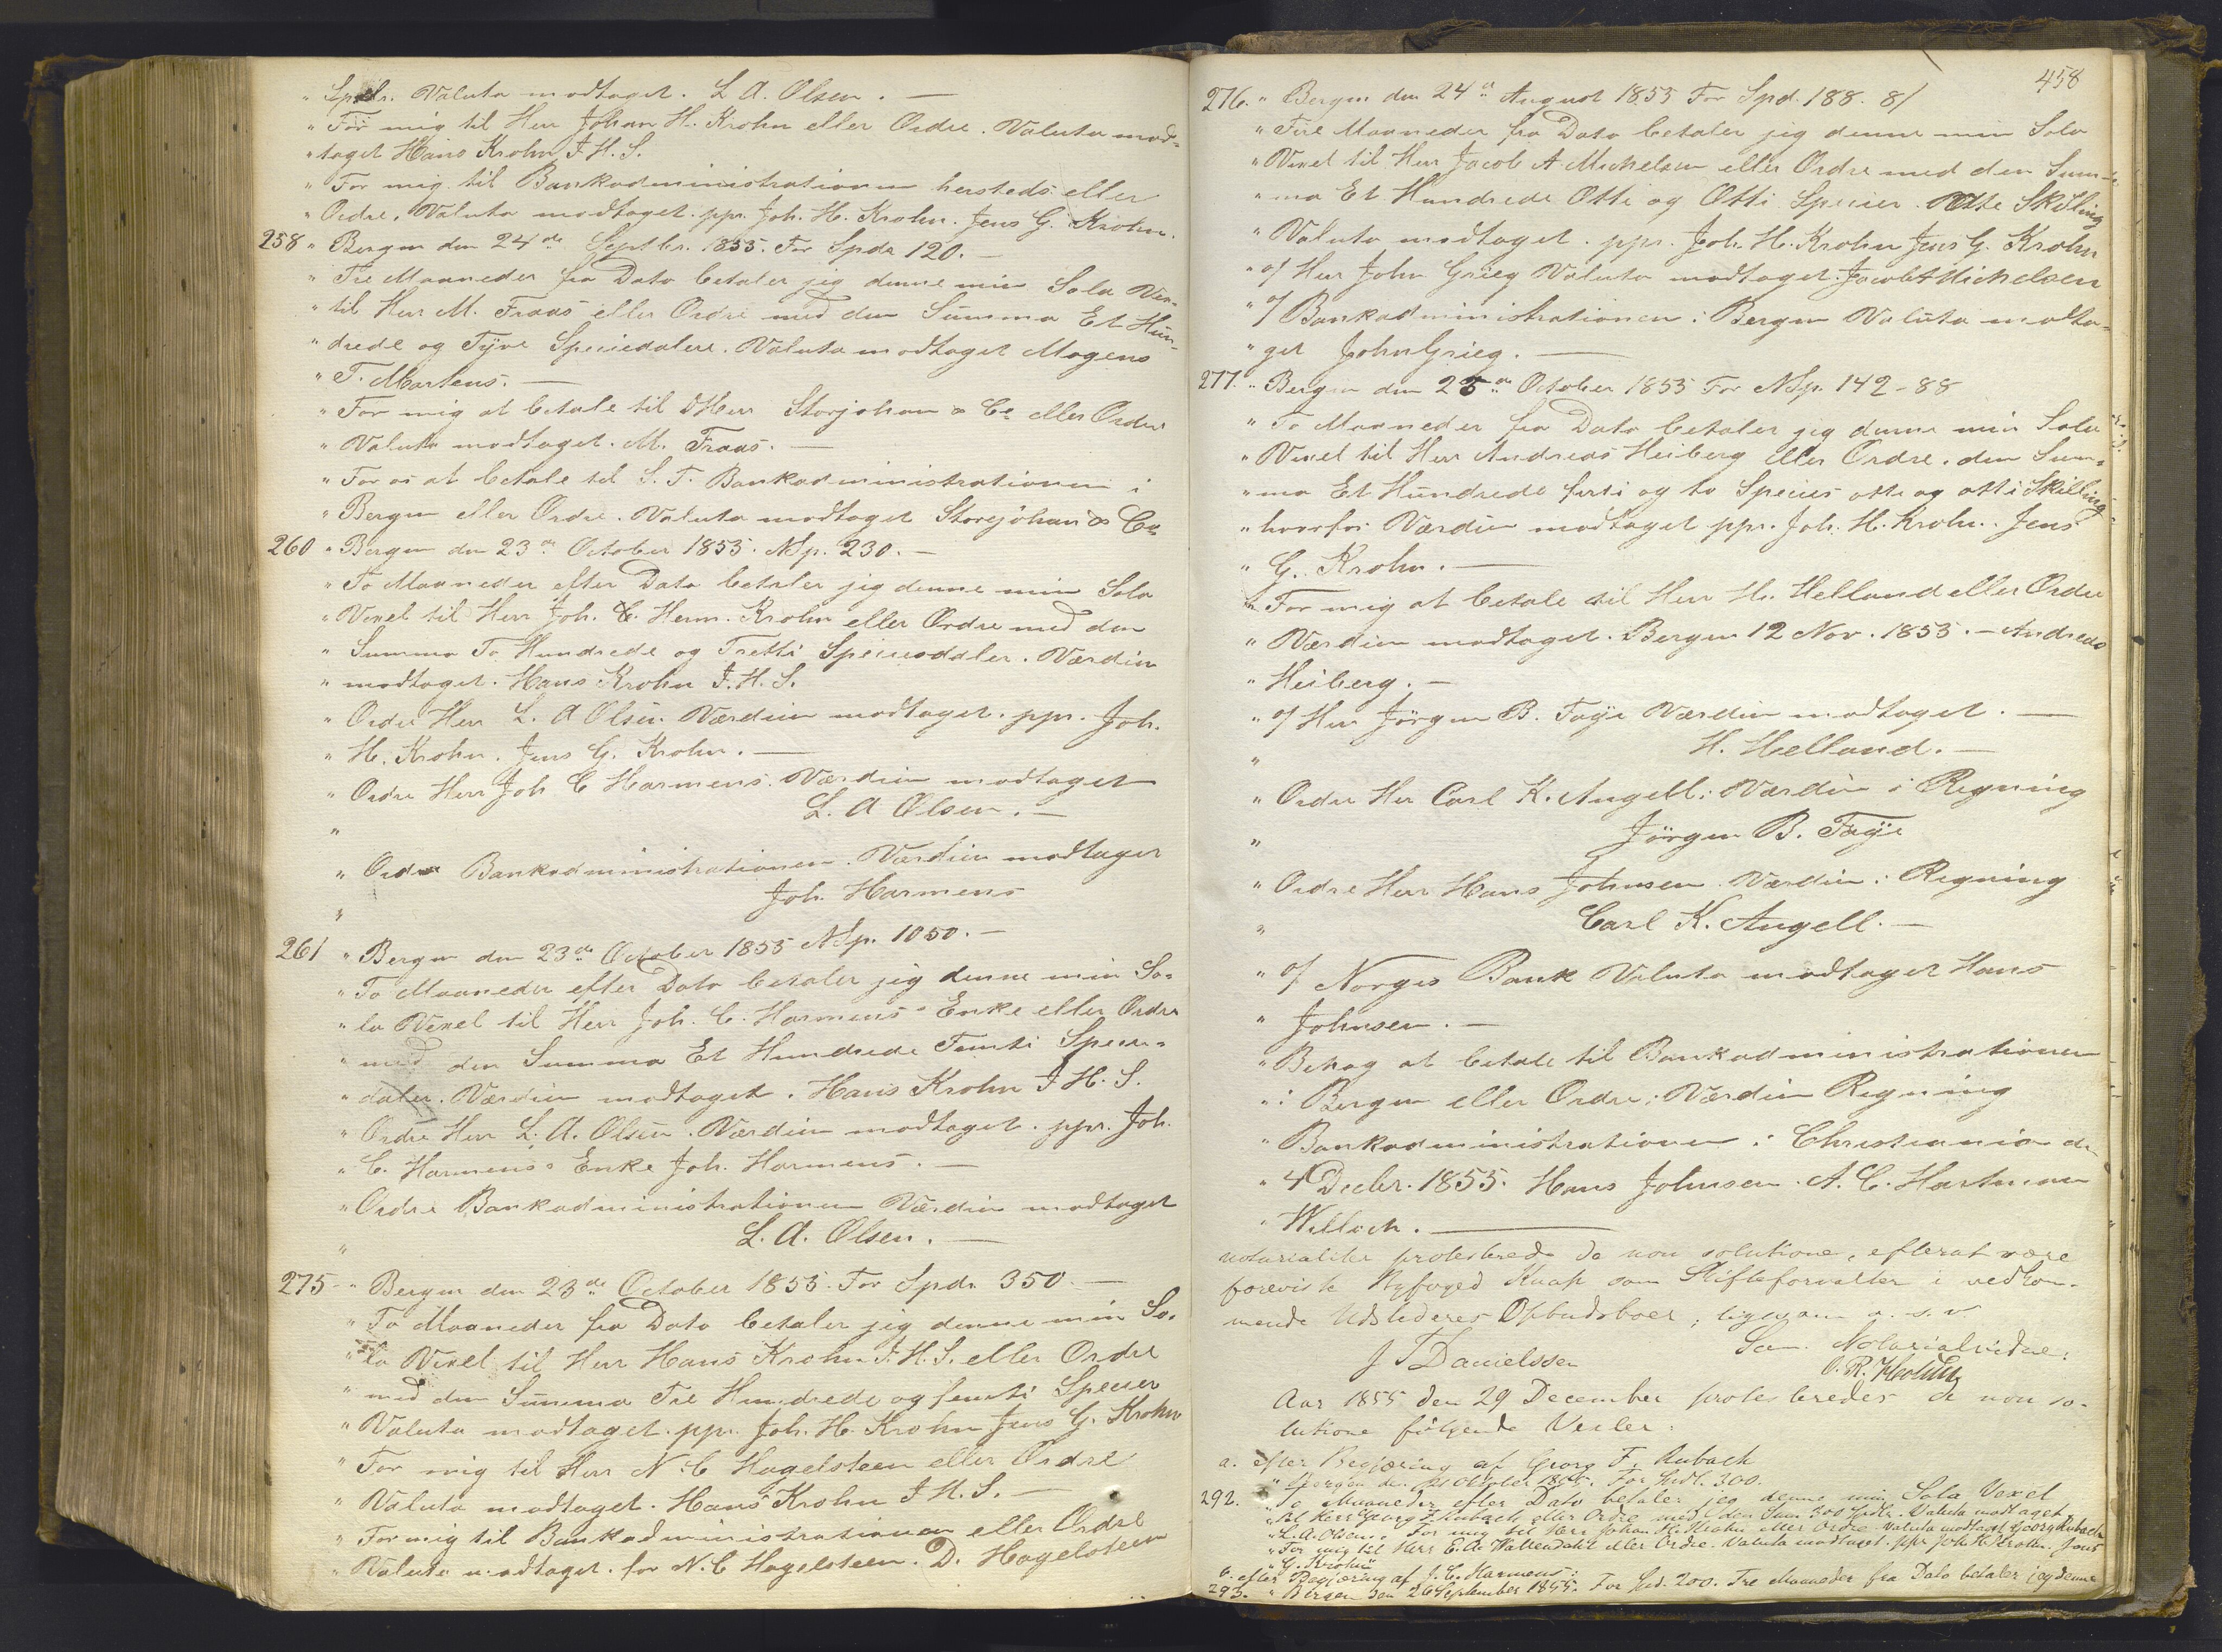 " Spdlr. Valuta modtaget. L A. Olsen. —
" For mig til Herr Johan H. Krohn eller Ordre. Valuta mod=
" taget Hans Krohn J. H. S.
" For mig til Bankadministrationen hersteds eller
" Ordre. Valuta modtaget. ppr. Joh. H. Krohn. Jens G. Krohn.
258 " Bergen den 24de Septbr. 1855. For Spdr 120. —
" Tre Maaneder fra Dato betaler jeg denne min Sola Vex-
" til Herr M. Fraas eller Ordre med den Summa Et Hun-
" drede og Tyve Speciedalere. Valuta modtaget Mogens
" T. Martens. —
" For mig at betale til DHerr Storjohan & Co eller Ordre
" Valuta modtaget. M. Fraas. —
" For os at betale til S. T. Bankadministrationen i
" Bergen eller Ordre. Valuta modtaget Storjohan & Co
260 " Bergen den 23de October 1855. NSp. 230. —
" To Maaneder efter Dato betaler jeg denne min Sola
" Vexel til Herr Joh. C. Herm. Krohn eller Ordre med den
" Summa To Hundrede og Tretti Speciesdaler. Værdien
" modtaget. Hans Krohn J. H. S.
" Ordre Herr L. A Olsen. Værdien modtaget. ppr. Joh.
" H. Krohn. Jens G. Krohn. —
" Ordre Herr Joh C Harmens. Værdien modtaget
" L. A Olsen. —
" Ordre Bankadministrationen. Værdien modtaget
" Joh. Harmens
261 " Bergen den 23de October 1855 NSp. 1050. —
" To Maaneder efter Dato betaler jeg denne min So=
" la Vexel til Herr Joh. C. Harmens' Enke eller Ordre
" med den Summa Et Hundrede Femti Specie=
" daler. Værdien modtaget. Hans Krohn J H. S.
" Ordre Herr L. A. Olsen. Værdien modtaget. ppr. Joh.
" C. Harmens' Enke Joh. Harmens. —
" Ordre Bankadministrationen Værdien modtaget
" L. A. Olsen. —
275 " Bergen den 23de October 1855. For Spdr. 350. —
" To Maaneder fra Dato betaler jeg denne min So=
" la Vexel til Herr Hans Krohn J. H. S. eller Ordre
" med den Summa Tre Hundrede og femti Specier
" Valuta modtaget. ppr. Joh. H. Krohn Jens G. Krohn
" For mig til Herr N. C Hagelsteen eller Ordre
" Valuta modtaget. Hans Krohn J H. S. —
" For mig til Bankadministrationen eller Ordre
" Valuta modtaget. for N. C Hagelsteen. D. Hagelsteen
458
276. " Bergen den 24de August 1855 For Spd. 188. 8/
" Fire Maaneder fra Dato betaler jeg denne min Sola
" Vexel til Herr Jacob A Michelsen eller Ordre med den Sum-
" ma Et Hundrede Otti og Otti Specier Otte Skilling
" Valuta modtaget. ppr. Joh. H. Krohn Jens G. Krohn
" o/ Herr John Grieg Valuta modtaget. Jacob A Michelsen
" o/ Bankadministrationen i Bergen Valuta modta=
" get John Grieg. —
277. " Bergen den 25de October 1855 For NSp. 142 - 88
" To Maaneder fra Dato betaler jeg denne min Sola
" Vexel til Herr Andreas Heiberg eller Ordre. den Sum=
" ma Et Hundrede firti og to Species otte og otti Skilling
" hvorfor Værdien modtaget ppr. Joh. H. Krohn. Jens
" G. Krohn. —
" For mig at betale til Herr H. Helland eller Ordre
" Værdien modtaget. Bergen 12 Nov. 1855. — Andreas
" Heiberg. —
" o/ Herr Jörgen B. Faye Værdien modtaget. —
" H. Helland. —
" Ordre Her Carl K. Angell: Værdien i Regning
" Jörgen B. Faye
" Ordre Herr Hans Johnsen. Værdien i Regning
" Carl K. Angell. —
" o/ Norges Bank Valuta modtaget Hans
" Johnsen. —
" Behag at betale til Bankadministrationen
" i Bergen eller Ordre; Værdien Regning
" Bankadministrationen i Christiania d.
" 4 Decbr. 1855. Hans Johnsen. A. C. Hartmann
" Willoch. —
notarialiter protesterede de non solutione, efterat være
foreviste Byfoged Knap som Skifteforvalter i vedkom-
mende Udstederes Opbudsboer, ligesom u. s. v
J T Danielssen Som Notarialvidne:
O. R. Holdts
Aar 1855 den 29 December protesteredes de non so-
lutione følgende Vexler:
a. efter Begjæring af Georg F. Rubach
292. " Bergen den 26 October 1855. For Spdl. 300.
" To Maaneder efter Dato betaler jeg denne min Sola Vexel
" til Herr Georg F. Rubach eller Ordre med den Sum 300 Spdlr. Valuta modtaget
" L. A. Olsen. For mig til Herr Johan H. Krohn eller Ordre. Valuta modtaget Georg Rubach
" For mig til Herr E. A. Wallendahl eller Ordre. Valuta modtaget. ppr Joh. H Krohn. Jens
" G. Krohn"
b. efter Begjæring af J. C. Harmens:
293. " Bergen den 26 September 1855. For Spd. 200. Tre Maaneder fra Dato betaler jeg denne